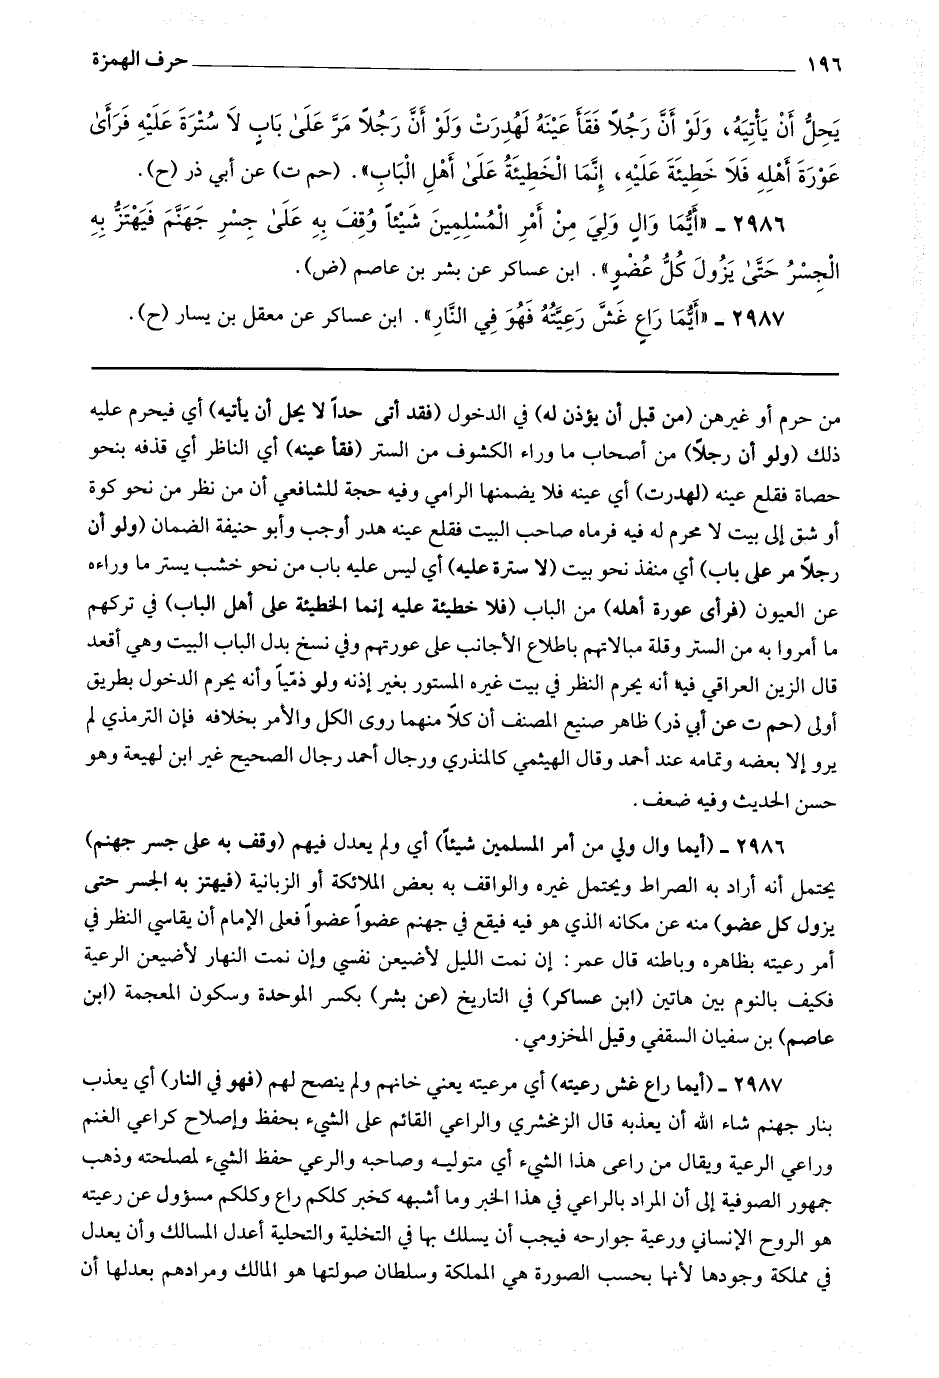 ١٩٦ حرف الهمزة
يَحِلُّ أَنْ يَأْتِيَهُ، وَلَوْ أَنَّ رَجُلاً فَقَأَ عَيْنَهُ لَهُدِرَتْ وَلَوْ أَنَّ رَجُلاً مَرَّ عَلَىٰ بَابٍ لَا سُتْرَةَ عَلَيْهِ فَرَأَىٰ
عَوْرَةَ أَهْلِهِ فَلَا خَطِيئَةَ عَلَيْهِ، إِنَّمَا الْخَطِيئَةُ عَلَىٰ أَهْلِ الْبَابِ». (حم ت) عن أبي ذر (ح).
٢٩٨٦ ـ «أَيُّمَا وَالٍ وَلِيَ مِنْ أَمْرِ الْمُسْلِمِينَ شَيْئاً وُقِفَ بِهِ عَلَىٰ جِسْرِ جَهَنَّمَ فَيَهْتَزُّ بِهِ
الْجِسْرُ حَتَّىٰ يَزُولَ كُلُّ عُضْوٍ». ابن عساكر عن بشر بن عاصم (ض).
٢٩٨٧ ـ «أَيُّمَا رَاعٍ غَشَّ رَعِيَّتَهُ فَهُوَ فِي النَّارِ». ابن عساكر عن معقل بن يسار (ح).
من حرم أو غيرهن (من قبل أن يؤذن له) في الدخول (فقد أتى حداً لا يحل أن يأتيه) أي فيحرم عليه
ذلك (ولو أن رجلاً) من أصحاب ما وراء الكشوف من الستر (فقأ عينه) أي الناظر أي قذفه بنحو
حصاة فقلع عينه (لهدرت) أي عينه فلا يضمنها الرامي وفيه حجة للشافعي أن من نظر من نحو كوة
أو شق إلى بيت لا محرم له فيه فرماه صاحب البيت فقلع عينه هدر أوجب وأبو حنيفة الضمان (ولو أن
رجلاً مر على باب) أي منفذ نحو بيت (لا سترة عليه) أي ليس عليه باب من نحو خشب يستر ما وراءه
عن العيون (فرأى عورة أهله) من الباب (فلا خطيئة عليه إنما الخطيئة على أهل الباب) في تركهم
ما أمروا به من الستر وقلة مبالاتهم باطلاع الأجانب على عورتهم وفي نسخ بدل الباب البيت وهي أقعد
قال الزين العراقي فيه أنه يحرم النظر في بيت غيره المستور بغير إذنه ولو ذمّياً وأنه يحرم الدخول بطريق
أولى (حم ت عن أبي ذر) ظاهر صنيع المصنف أن كلاً منهما روى الكل والأمر بخلافه فإن الترمذي لم
يرو إلا بعضه وتمامه عند أحمد وقال الهيثمي كالمنذري ورجال أحمد رجال الصحيح غير ابن لهيعة وهو
حسن الحديث وفيه ضعف.
٢٩٨٦ ـ (أيما وال ولي من أمر المسلمين شيئاً) أي ولم يعدل فيهم (وقف به على جسر جهنم)
يحتمل أنه أراد به الصراط ويحتمل غيره والواقف به بعض الملائكة أو الزبانية (فيهتز به الجسر حتى
يزول كل عضو) منه عن مكانه الذي هو فيه فيقع في جهنم عضواً عضواً فعلى الإمام أن يقاسي النظر في
أمر رعيته بظاهره وباطنه قال عمر: إن نمت الليل لأضيعن نفسي وإن نمت النهار لأضيعن الرعية
فكيف بالنوم بين هاتين (ابن عساكر) في التاريخ (عن بشر) بكسر الموحدة وسكون المعجمة (ابن
عاصم) بن سفيان السقفي وقيل المخزومي.
٢٩٨٧ ـ (أيما راع غش رعيته) أي مرعيته يعني خانهم ولم ينصح لهم (فهو في النار) أي يعذب
بنار جهنم شاء الله أن يعذبه قال الزمخشري والراعي القائم على الشيء بحفظ وإصلاح كراعي الغنم
وراعي الرعية ويقال من راعى هذا الشيء أي متوليه وصاحبه والرعي حفظ الشيء لمصلحته وذهب
جمهور الصوفية إلى أن المراد بالراعي في هذا الخبر وما أشبهه كخبر كلكم راع وكلكم مسؤول عن رعيته
هو الروح الإنساني ورعية جوارحه فيجب أن يسلك بها في التخلية والتحلية أعدل المسالك وأن يعدل
في مملكة وجودها لأنها بحسب الصورة هي المملكة وسلطان صولتها هو المالك ومرادهم بعدلها أن